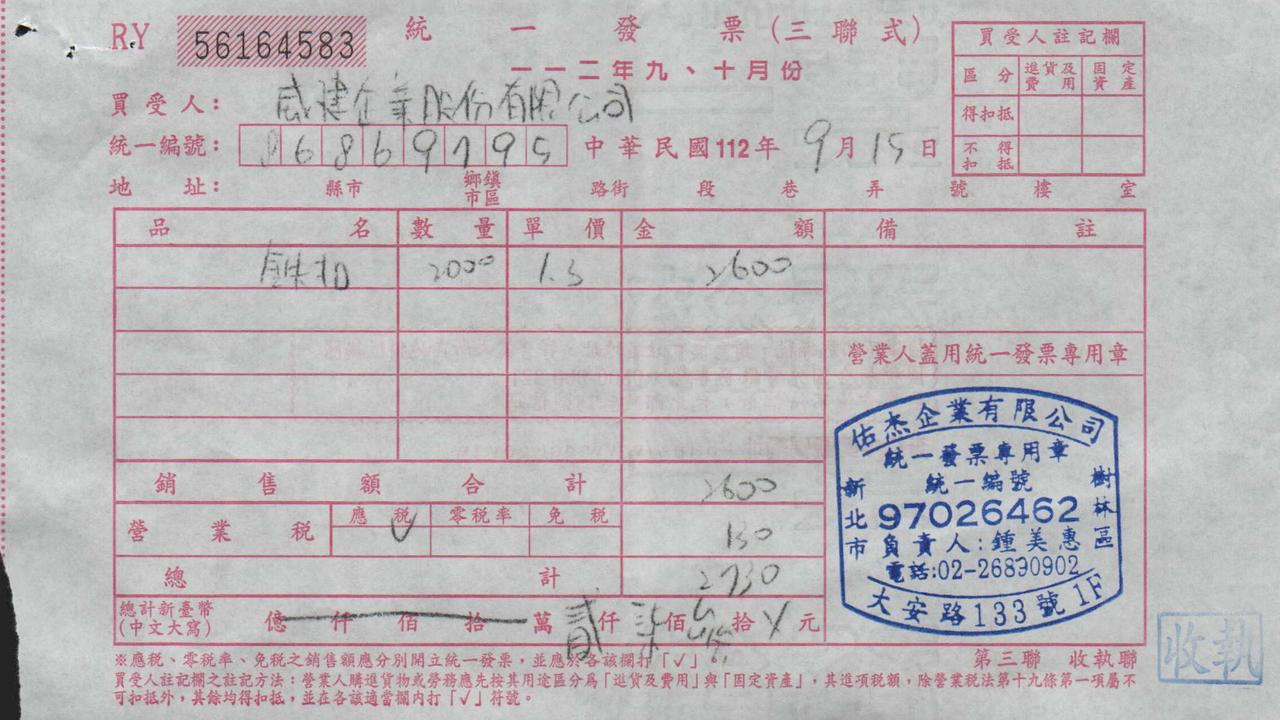 RY 56164583 統一發票(三聯式)
一一二年九、十月份
買受人註記欄
區分 進貨及費用 固定資產
得扣抵
不得扣抵
買受人: 威建企業股份有限公司
統一編號: 68691795 中華民國112年9月15日
地址: 縣市 鄉鎮市區 路街 段 巷 弄 號 樓 室
品名 數量 單價 金額 備註
2000 1.3 2600
營業人蓋用統一發票專用章
銷售額合計 2600
營業稅 應稅 ∨ 零稅率 免稅 130
總計 2730
總計新臺幣(中文大寫) 億仟佰拾萬貳仟柒佰拾元
佑杰企業有限公司
統一發票專用章
統一編號
97026462
負責人:鍾美惠
電話:02-26830902
新北市樹林區
大安路133號1F
※應稅、零稅率、免稅之銷售額應分別開立統一發票,並應於各該欄打「✓」。
第三聯 收執聯
買受人註記欄之註記方法:營業人購進貨物或勞務應先按其用途區分為「進貨及費用」與「固定資產」,其進項稅額,除營業稅法第十九條第一項屬不
可扣抵外,其餘均得扣抵,並在各該適當欄內打「✓」符號。
收執